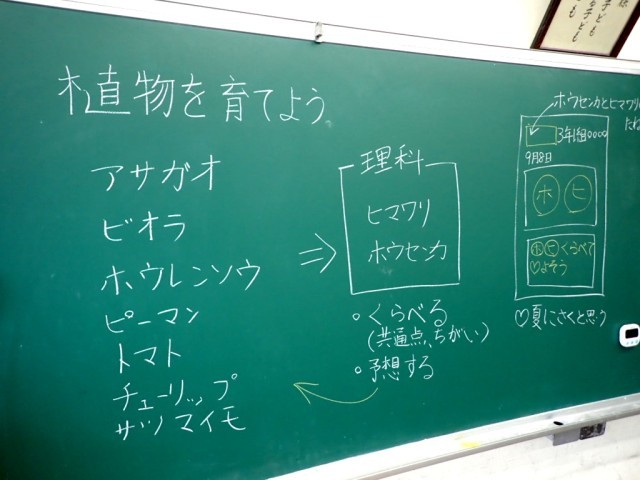 植物を育てよう
アサガオ
ビオラ
ホウレンソウ
ピーマン
トマト
チューリップ
サツマイモ
理科
ヒマワリ
ホウセンカ
・くらべる
(共通点、ちがい)
・予想する
ホウセンカとヒマワリの
たね
3年1組○○○○
9月8日
ホ ヒ
ホ ヒ くらべて
♡よそう
♡夏にさくと思う
子ども
も